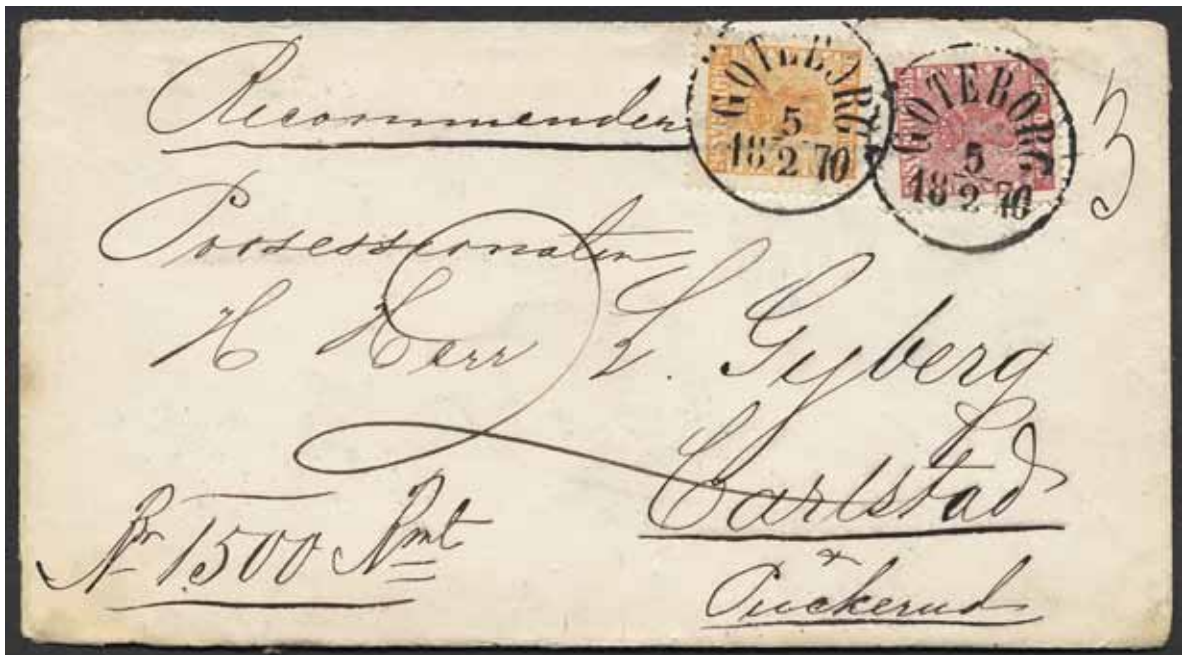 Recommenderas
GÖTEBORG
5
18 2 70
GÖTEBORG
5
18 2 70
3
Possessionaten
H Herr L. Gyberg
Carlstad
1500 Rmt